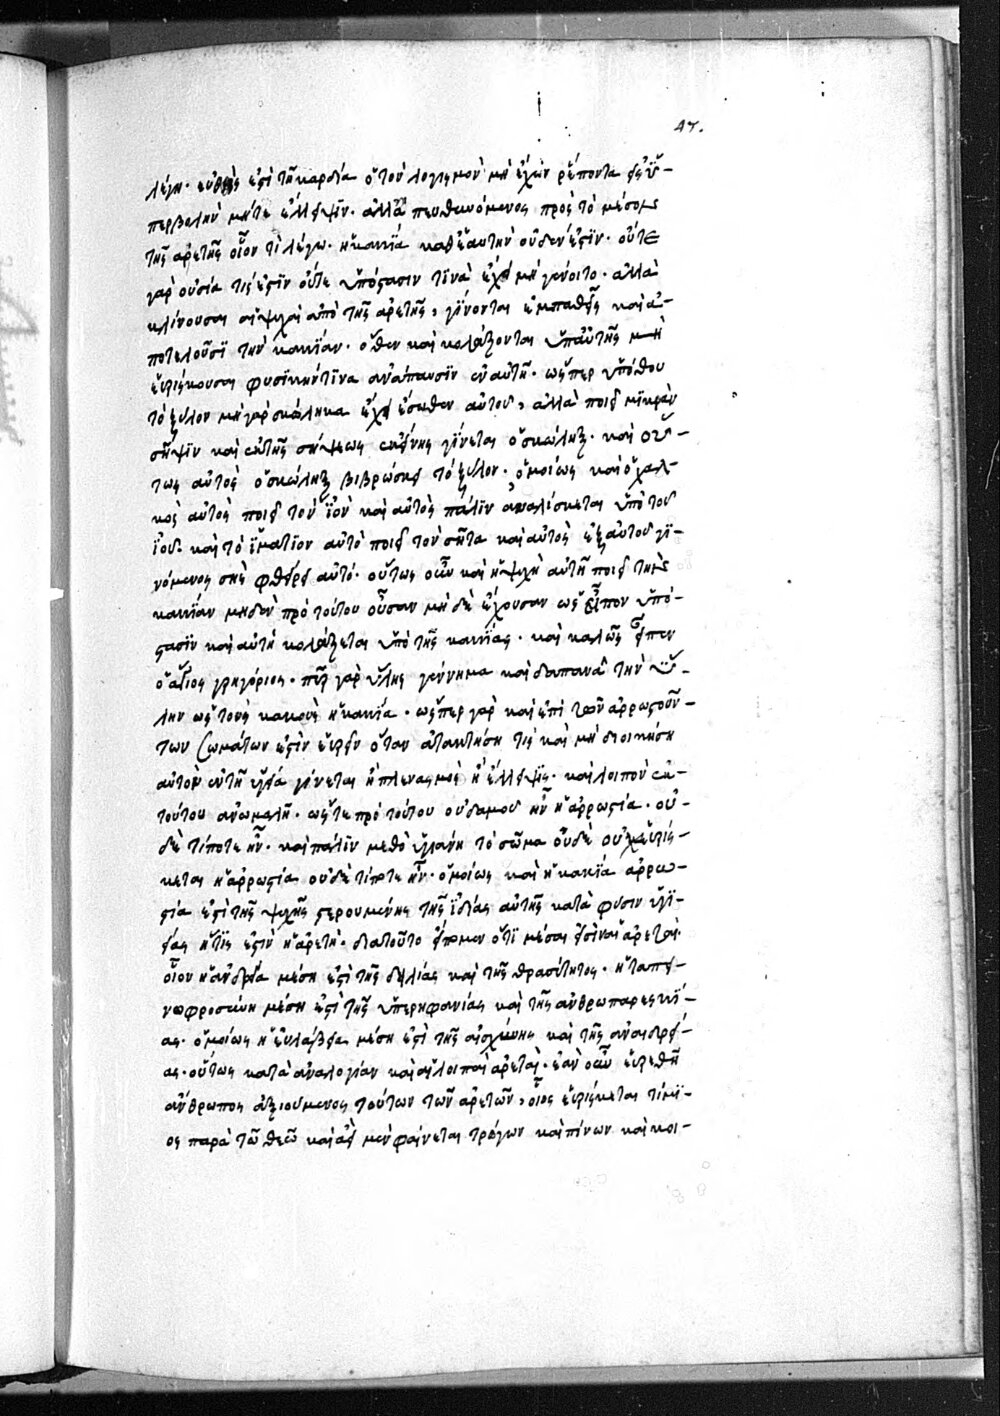 47.
λέγει· εὐθὴς ἐστὶ τῇ καρδία ὁ τὸν λογισμὸν μὴ ἔχων ῥέποντα εἰς ὑ-
περβολὴν μήτε ἔλλειψιν. ἀλλὰ πευθυνόμενος πρὸς τὸ μέσον
τῆς ἀρετῆς οἷον τί λέγω. ἡ κακία καθ' ἑαυτὴν οὐδέν ἐστιν. οὔτε
γὰρ οὐσία τίς ἐστιν οὔτε ὑπόστασιν τινὰ ἔχει μὴ γένοιτο. ἀλλὰ
κλίνουσαι αἱ ψυχαὶ ἀπὸ τῆς ἀρετῆς, γίνονται ἐμπαθεῖς καὶ ἀ-
ποτελοῦσι τὴν κακίαν. ὅθεν καὶ κολάζονται ὑπ' αὐτῆς μὴ
εὑρίσκουσαι φυσικήν τινα ἀνάπαυσιν ἐν αὐτῇ. ὥσπερ ὑπόθου
τὸ ξύλον μὴ γὰρ σκώληκα ἔχει ἔσωθεν αὐτοῦ, ἀλλὰ ποιεῖ μικρὰν
σῆψιν καὶ ἐκ τῆς σήψεως ἐκείνης γίνεται ὁ σκώληξ. καὶ οὕ-
τως αὐτὸς ὁ σκώληξ βιβρώσκει τὸ ξύλον. ὁμοίως καὶ ὁ χαλ-
κὸς αὐτὸς ποιεῖ τὸν ἰὸν καὶ αὐτὸς πάλιν ἀναλίσκεται ὑπὸ τοῦ
ἰοῦ. καὶ τὸ ἱμάτιον αὐτὸ ποιεῖ τὸν σῆτα καὶ αὐτὸς ἐξ αὐτοῦ γι-
νόμενος σὴς φθείρει αὐτό. οὕτως οὖν καὶ ἡ ψυχὴ αὐτὴ ποιεῖ τὴν
κακίαν μηδὲν πρὸ τούτου οὖσαν μὴ δὲ ἔχουσαν ὡς εἶπον ὑπό-
στασιν καὶ αὐτὴ κολάζεται ὑπὸ τῆς κακίας. καὶ καλῶς εἶπεν
ὁ ἅγιος γρηγόριος. πῦρ γὰρ ὕλης γέννημα καὶ δαπανᾶ τὴν ὕ-
λην ὡς τοὺς κακοὺς ἡ κακία. ὥσπερ γὰρ καὶ ἐπὶ τῶν ἀρρωστούν-
των σωμάτων ἐστὶν εὑρεῖν ὅταν ἀτακτήση τις καὶ μὴ διοικήση
αὐτὸν ἐν τῇ ὑγεία γίνεται ἢ πλεονασμὸς ἢ ἔλλειψις. καὶ λοιπὸν ἐκ
τούτου ἀνωμαλῆ. ὥστε πρὸ τούτου οὐδαμοῦ ἦν ἡ ἀρρωστία. οὐ-
δὲ τίποτε ἦν. καὶ πάλιν μεθὸ ὑγιάνη τὸ σῶμα οὐδὲ οὐχ εὑρίσ-
κεται ἡ ἀρρωστία οὐδὲ τίποτε ἦν. ὁμοίως καὶ ἡ κακία ἀρρω-
στία ἐστὶ τῆς ψυχῆς στερουμένης τῆς ἰδίας αὐτῆς κατὰ φύσιν ὑγι-
είας ἥτις ἐστὶν ἡ ἀρετή. διὰ τοῦτο εἴπομεν ὅτι μέσαι εἰσὶν αἱ ἀρεταὶ.
οἷον ἡ ἀνδρεία μέση ἐστὶ τῆς δειλίας καὶ τῆς θρασύτητος. ἡ ταπει-
νοφροσύνη μέση ἐστὶ τῆς ὑπερηφανίας καὶ τῆς ἀνθρωπαρεσκεί-
ας. ὁμοίως ἡ εὐλάβεια μέση ἐστὶ τῆς αἰσχύνης καὶ τῆς ἀναιδρεί-
ας. οὕτως κατὰ ἀναλογίαν καὶ αἱ λοιπαὶ ἀρεταὶ. ἐὰν οὖν εὑρεθῆ
ἄνθρωπος ἀξιούμενος τούτων τῶν ἀρετῶν, οἷος εὑρίσκεται τίμι-
ος παρὰ τῶ θεῶ καὶ ἀεὶ μὲν φαίνεται τρώγων καὶ πίνων καὶ κοι-